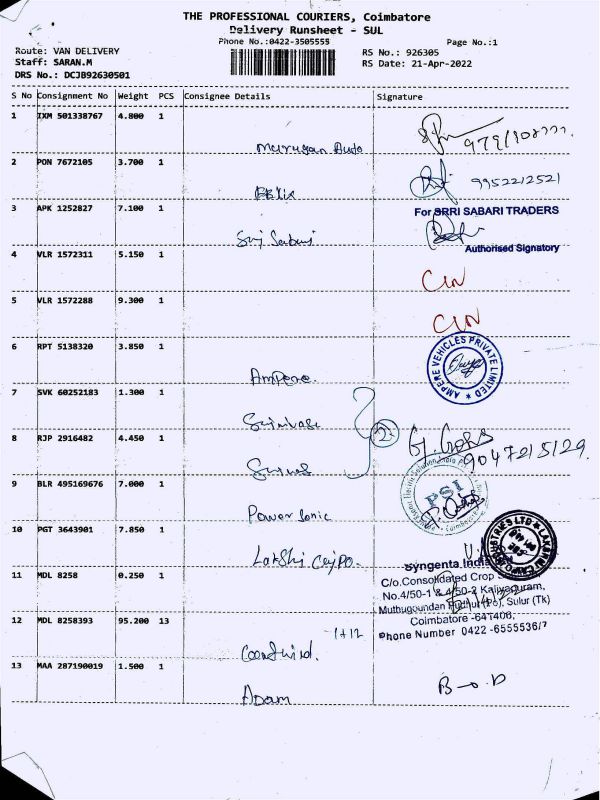 THE PROFESSIONAL COURIERS, Coimbatore
Delivery Runsheet - SUL
Phone No.:0422-3505555
Page No.:1
Route: VAN DELIVERY
RS No.: 926305
Staff: SARAN.M
RS Date: 21-Apr-2022
DRS No.: DCJB92630501
S No Consignment No Weight PCS Consignee Details Signature
1 IXM 501338767 4.800 1
Murugan Auto
2 PON 7672105 3.700 1
9952212521
Felix
3 APK 1252827 7.100 1
For SRRI SABARI TRADERS
Sri Sabari
Authorised Signatory
4 VLR 1572311 5.150 1
5 VLR 1572288 9.300 1
6 RPT 5138320 3.850 1
AMPERE VEHICLES PRIVATE LIMITED
Ampere.
7 SVK 60252183 1.300 1
Srinivasa
2
8 RJP 2916482 4.450 1
9047215129.
9 BLR 495169676 7.000 1
PSI
Coimbatore
Power Sonic
10 PGT 3643901 7.850 1
Syngenta India
11 MDL 8258 0.250 1
C/o.Consolidated Crop
No.4/50-1 & 4/50-2 Kaliyapuram,
Muthugoundan Pudhur (Po), Sulur (Tk)
12 MDL 8258393 95.200 13
Coimbatore -641406,
1+12
Phone Number 0422 -6555536/7
13 MAA 287190019 1.500 1
B → D
Adam